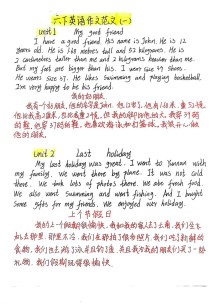 六下英语作文范文(一)
Unit 1 My good friend
I have a good friend. His name is John. He is 12
years old. He is 160 meters tall and 52 kilograms. He is
2 centimeters taller than me and 2 kilograms heavier.
But my feet are bigger than his. I wear size 39 shoes.
He wears size 37. He likes swimming and playing basketball.
I'm very happy to be his friend.
我的好朋友
我有一个好朋友,他的名字是John,他12岁,他高160米,重52
他比我高2厘米,
的鞋,他穿37码的鞋,他喜欢游泳和打篮球,我很开心做
他的朋友。
Unit 2 Last holiday
My last holiday was great. I went to Yunnan with
my family. We went there by plane. It was not cold
there. We took lots of photos there. We ate fresh food.
We also went swimming and went fishing. And I bought
some gifts for my friends. We enjoyed our holiday.
上个节假日
我的上个假期很愉快,我和我的家人去了云南,我们坐飞
机去那里,那里不冷,我们在那拍了很多照片,我们吃了新鲜的
食物,我们也去游了泳并且钓了鱼,并且我为我的朋友们买了一些
礼物,我们假期玩得很愉快。